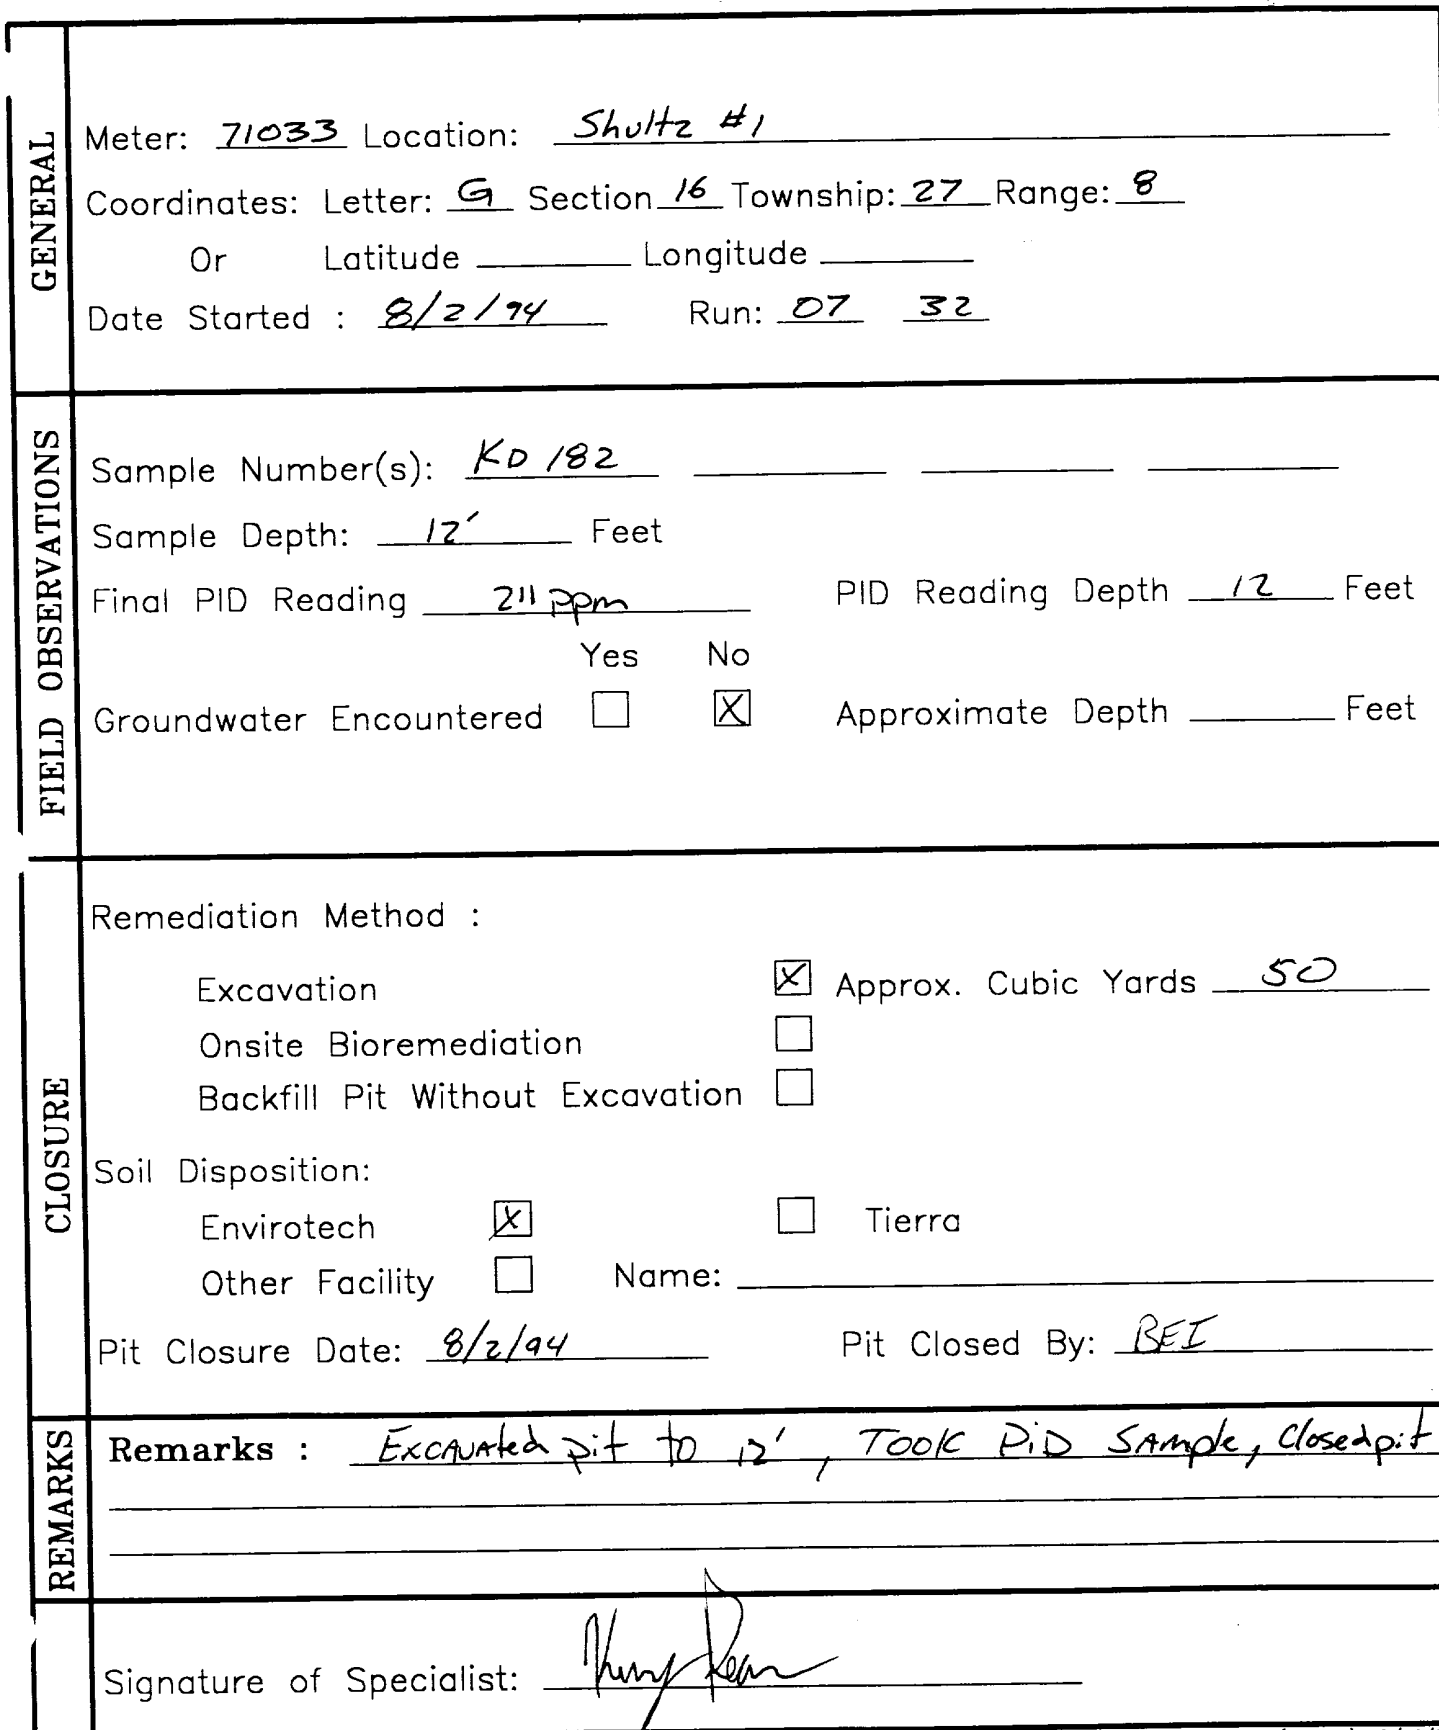 GENERAL
Meter: 71033 Location: Shultz #1
Coordinates: Letter: G Section 16 Township: 27 Range: 8
Or Latitude Longitude
Date Started : 8/2/94 Run: 07 32
FIELD OBSERVATIONS
Sample Number(s): KD 182
Sample Depth: 12' Feet
Final PID Reading 211 ppm PID Reading Depth 12 Feet
Yes No
Groundwater Encountered X Approximate Depth Feet
CLOSURE
Remediation Method :
Excavation X Approx. Cubic Yards 50
Onsite Bioremediation
Backfill Pit Without Excavation
Soil Disposition:
Envirotech X Tierra
Other Facility Name:
Pit Closure Date: 8/2/94 Pit Closed By: BEI
REMARKS
Remarks : Excavated pit to 12', Took PiD Sample, Closed pit
Signature of Specialist: